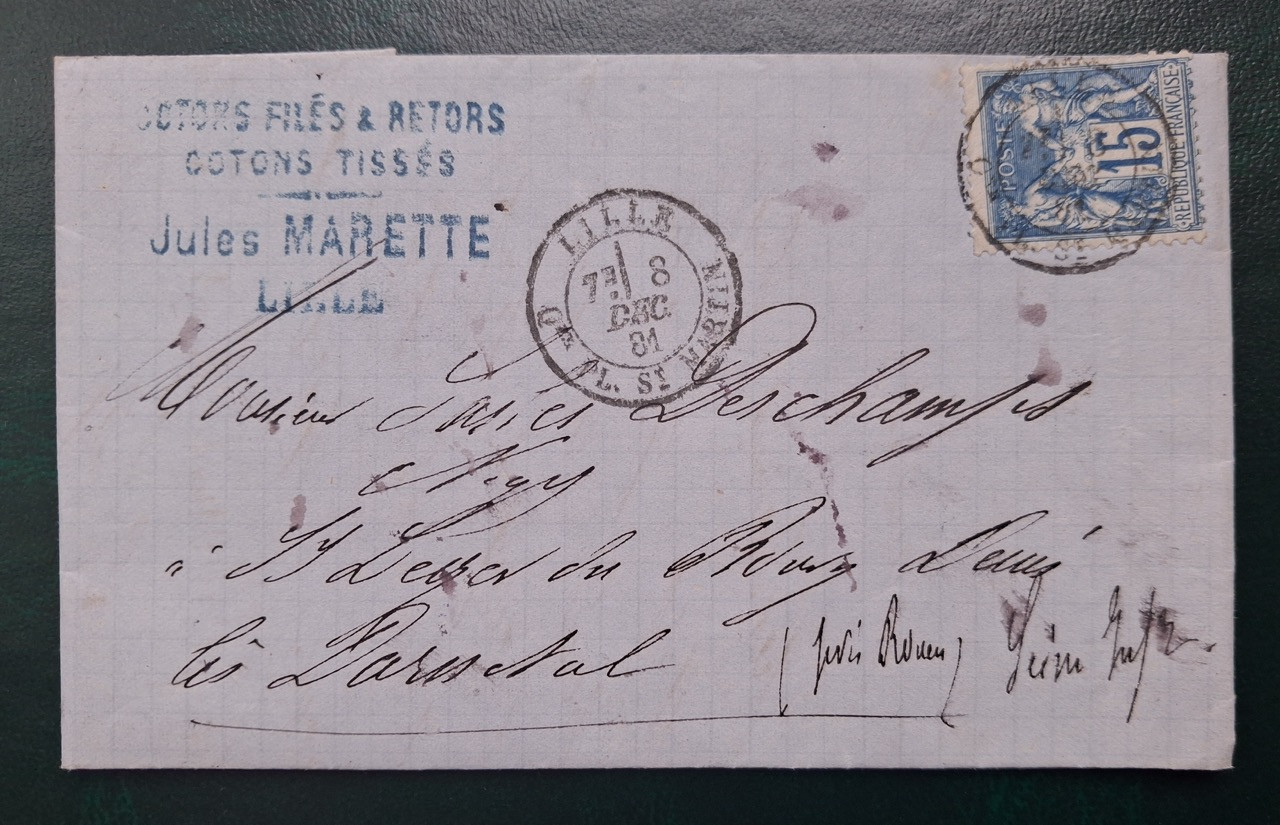 COTONS FILÉS & RETORS
COTONS TISSÉS
Jules MARETTE
LILLE
LILLE
7E 8
DEC.
81
PL. ST MARTIN
POSTES
15
REPUBLIQUE FRANÇAISE
Monsieur Deschamps
Negt
à St Leger du Bourg Denis
lès Darnetal (près Rouen) Seine Infre